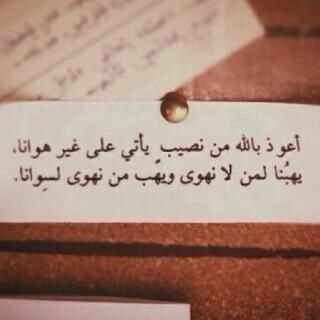 أعوذ بالله من نصيبٍ يأتي على غير هوانا،
يهبُنا لمن لا نهوى ويهب من نهوى لسِوانا.